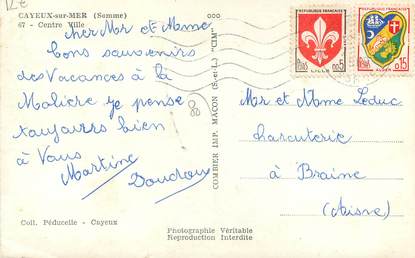 12€
CAYEUX-sur-MER (Somme)
67 - Centre Ville
cher Mr et Mme
bons souvenirs
des Vacances à la
Molière je pense
toujours bien
à Vous
Martine
Coll. Péducelle - Cayeux
COMBIER IMP. MACON (S.-et-L.) "CIM"
REPUBLIQUE FRANÇAISE
0,05
LILLE
REPUBLIQUE FRANÇAISE
0,15
ALGER
80
Mr et Mme Leduc
charcuterie
à Braine
(Aisne)
Photographie Véritable
Reproduction Interdite